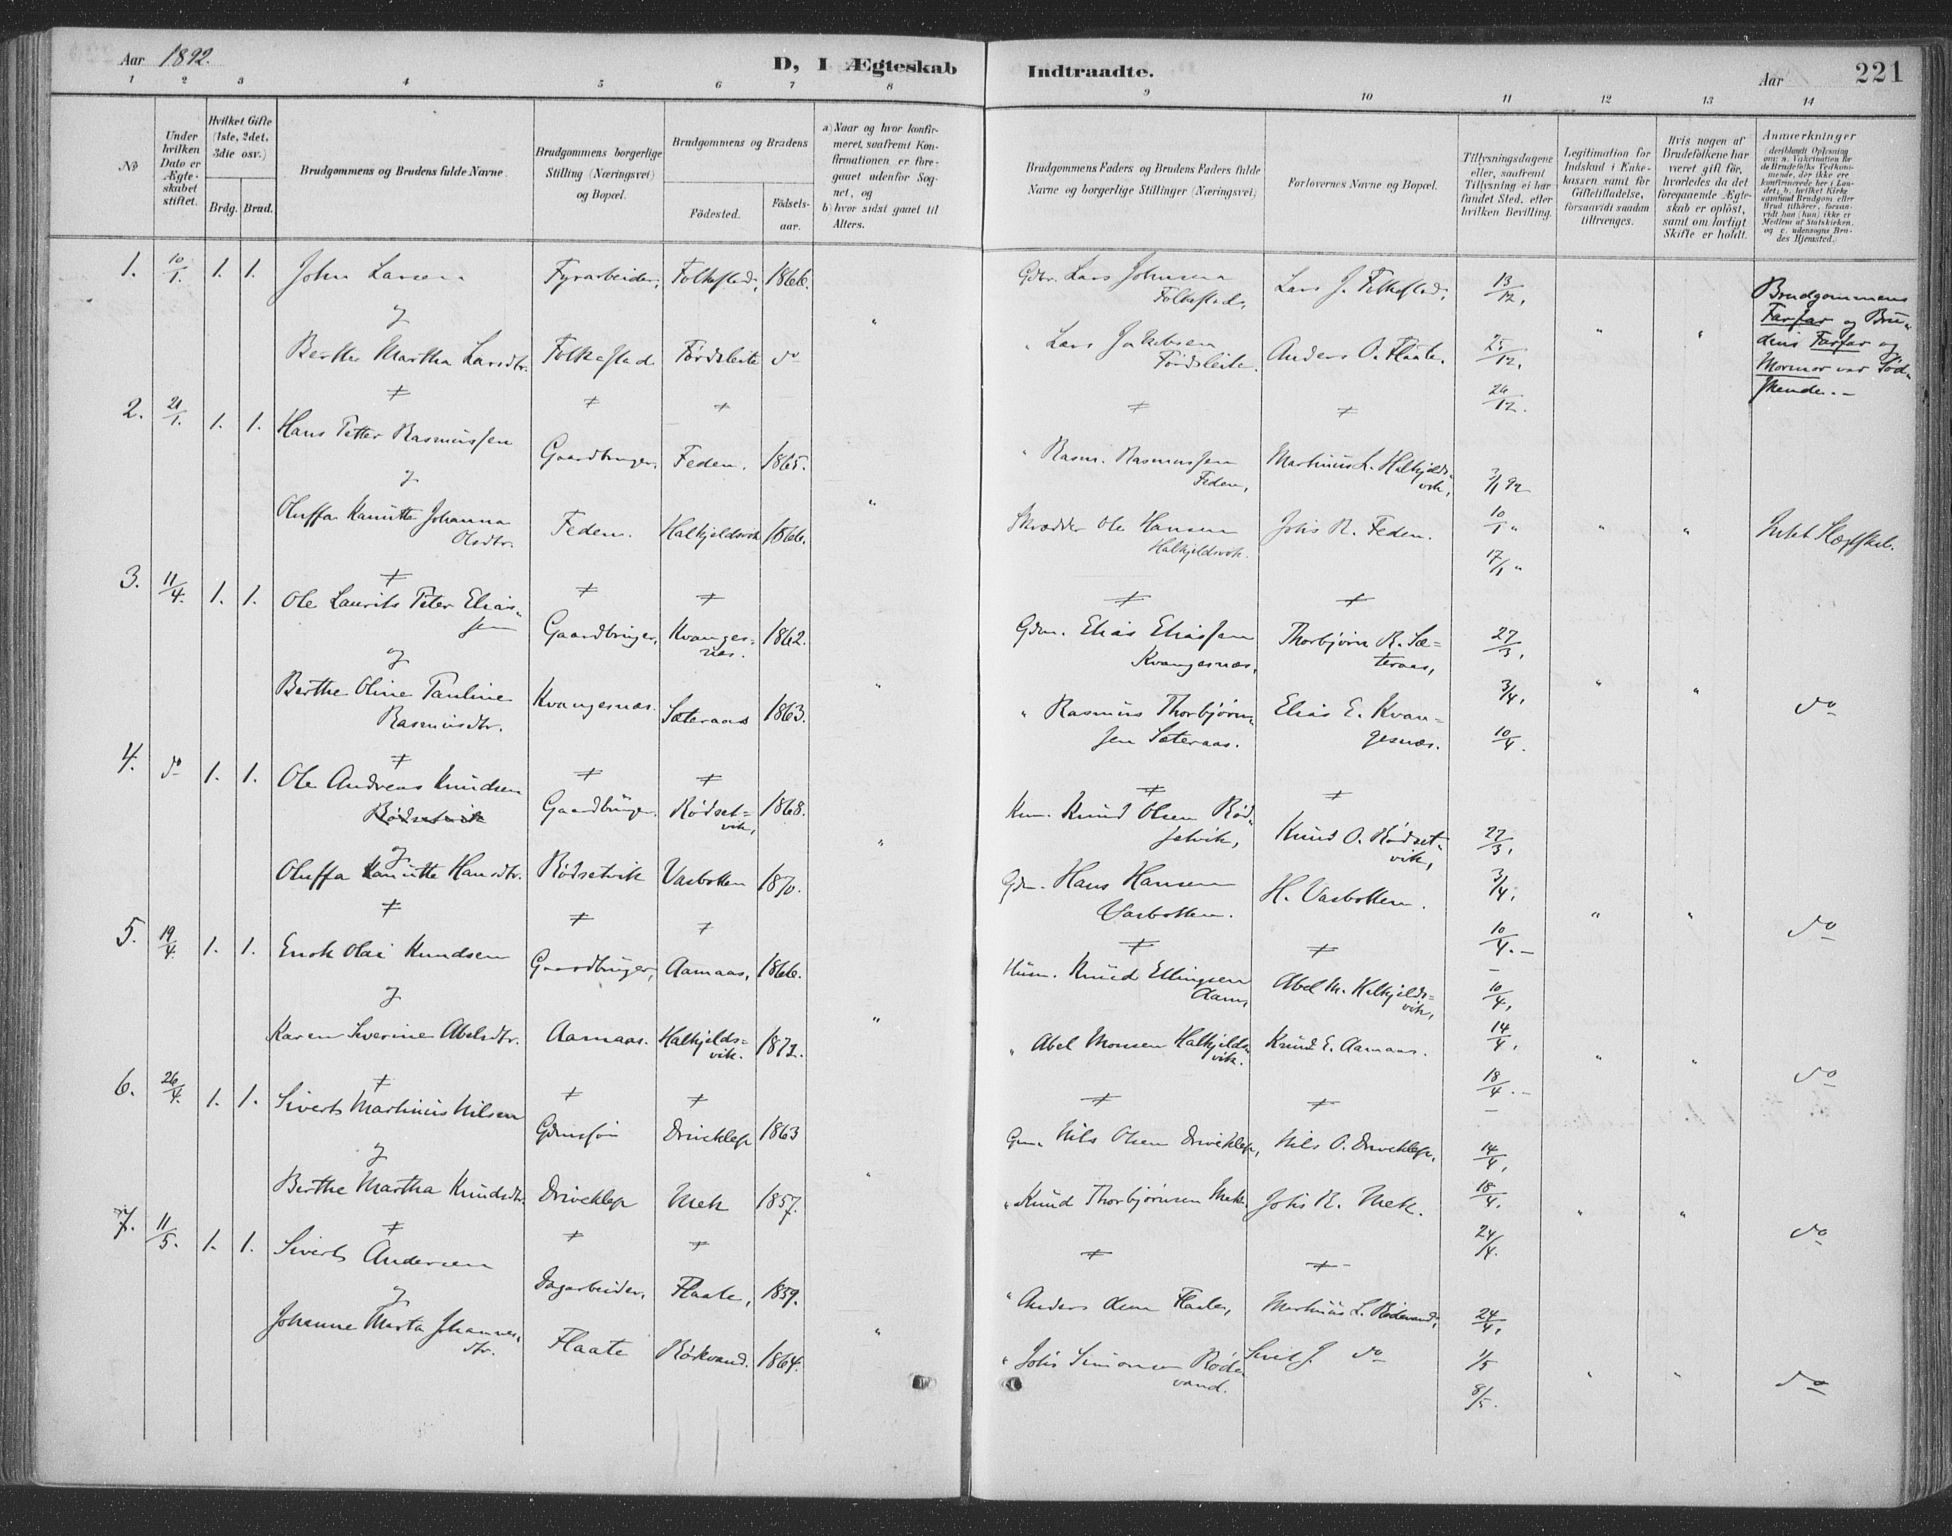 Aar 1892.
D, I Ægteskab Indtraadte.
Aar
221
1 2 3 4 5 6 7 8 9 10 11 12 13 14
No
Under hvilken Dato er Ægteskabet stiftet.
Hvilket Gifte (1ste, 2det, 3die osv.)
Brdg. Brud.
Brudgommens og Brudens fulde Navne.
Brudgommens borgerlige Stilling (Næringsvei) og Bopæl.
Brudgommens og Brudens
Fødested.
Fødselsaar.
a) Naar og hvor konfirmeret, saafremt Konfirmationen er foregaaet udenfor Sognet, og
b) hvor sidst gaaet til Alters.
Brudgommens Faders og Brudens Faders fulde Navne og borgerlige Stillinger (Næringsvei)
Forlovernes Navne og Bopæl.
Tillysningsdagene eller, saafremt Tillysning ei har fundet Sted, efter hvilken Bevilling.
Legitimation for Indskud i Enkekassen samt for Giftetilladelse, forsaavidt saadan tiltrænges.
Hvis nogen af Brudefolkene har været gift før, hvorledes da det foregaaende Ægteskab er opløst, samt om lovligt Skifte er holdt.
Anmærkninger
1. 10/1. 1. 1. John Larsen Fyrarbeider, Folkestad, 1866. Gdbr. Lars Johnsen Folkestad, Lars J. Folkestad, 13/12,
og
Berthe Martha Larsdtr. Folkestad Førdsleite do Lars Jakobsen Førdsleite. Anders O. Flaate. 25/12,
26/12.
Brudgommens
Farfar og Bru-
dens Farfar og
Mormor var Sød-
skende. -
2. 21/1. 1. 1. Hans Petter Rasmussen Gaardbruger, Feden. 1865. " Rasm. Rasmussen Feden, Martinus L. Halkjelds-
vik, 3/1 92
og
Oluffa Kanutte Johanna
Olsdtr. Feden. Halkjeldsvik 1866. Skrædder Ole Hansen
Halkjeldsvik. Johs R. Feden. 10/1 "
17/1 "
Intet Slægtskab.
3. 11/4. 1. 1. Ole Laurits Peter Elias-
sen Gaardbruger, Kvanges-
næs. 1862. Gdm. Elias Eliassen
Kvangesnæs, Thorbjørn R. Sæ-
teraas, 27/3,
og
Berthe Oline Pauline
Rasmusdtr. Kvangesnæs. Sæteraas 1863. " Rasmus Thorbjørn-
sen Sæteraas. Elias E. Kvan-
gesnæs. 3/4,
10/4.
do
4. do 1. 1. Ole Andreas Knudsen
Rødsetvik Gaardbruger. Rødset-
vik, 1868. Knud Olsen Rød-
setvik, Knud O. Rødset-
vik, 27/3,
og
Oluffa Kanutte Hansdtr. Rødsetvik Vasbotten 1870. Gdm. Hans Hansen
Vasbotten. H. Vasbotten. 3/4,
10/4. -
do
5. 19/4. 1. 1. Enok Olai Knudsen Gaardbruger, Aamaas, 1866. Husm. Knud Ellingsen
Aam, Abel M. Halkjelds-
vik, 10/4,
og
Karen Severine Abelsdtr. Aamaas. Halkjelds-
vik. 1872. " Abel Monsen Halkjelds-
vik. Knud E. Aamaas. 14/4,
18/4. -
do
6. 26/4. 1. 1. Siverts Martinus Nilsen Gdmssøn Driveklep 1863 Nils Olsen Driveklep, Nils O. Driveklep, 14/4,
og
Berthe Martha Knudsdtr. Driveklep Mek 1857. " Knud Thorbjørnsen Mek. Johs K. Mek. 18/4.
24/4.
do
7. 11/5. 1. 1. Siverts Andersen Dagarbeider, Flaate, 1859. " Anders Flaate, Martinus L. 24/4,
og
Johanne Marta Johannes-
dtr. Flaate 1864. " Johs Simonsen Røde-
vand. Sivert J. do 1/5
8/5.
do